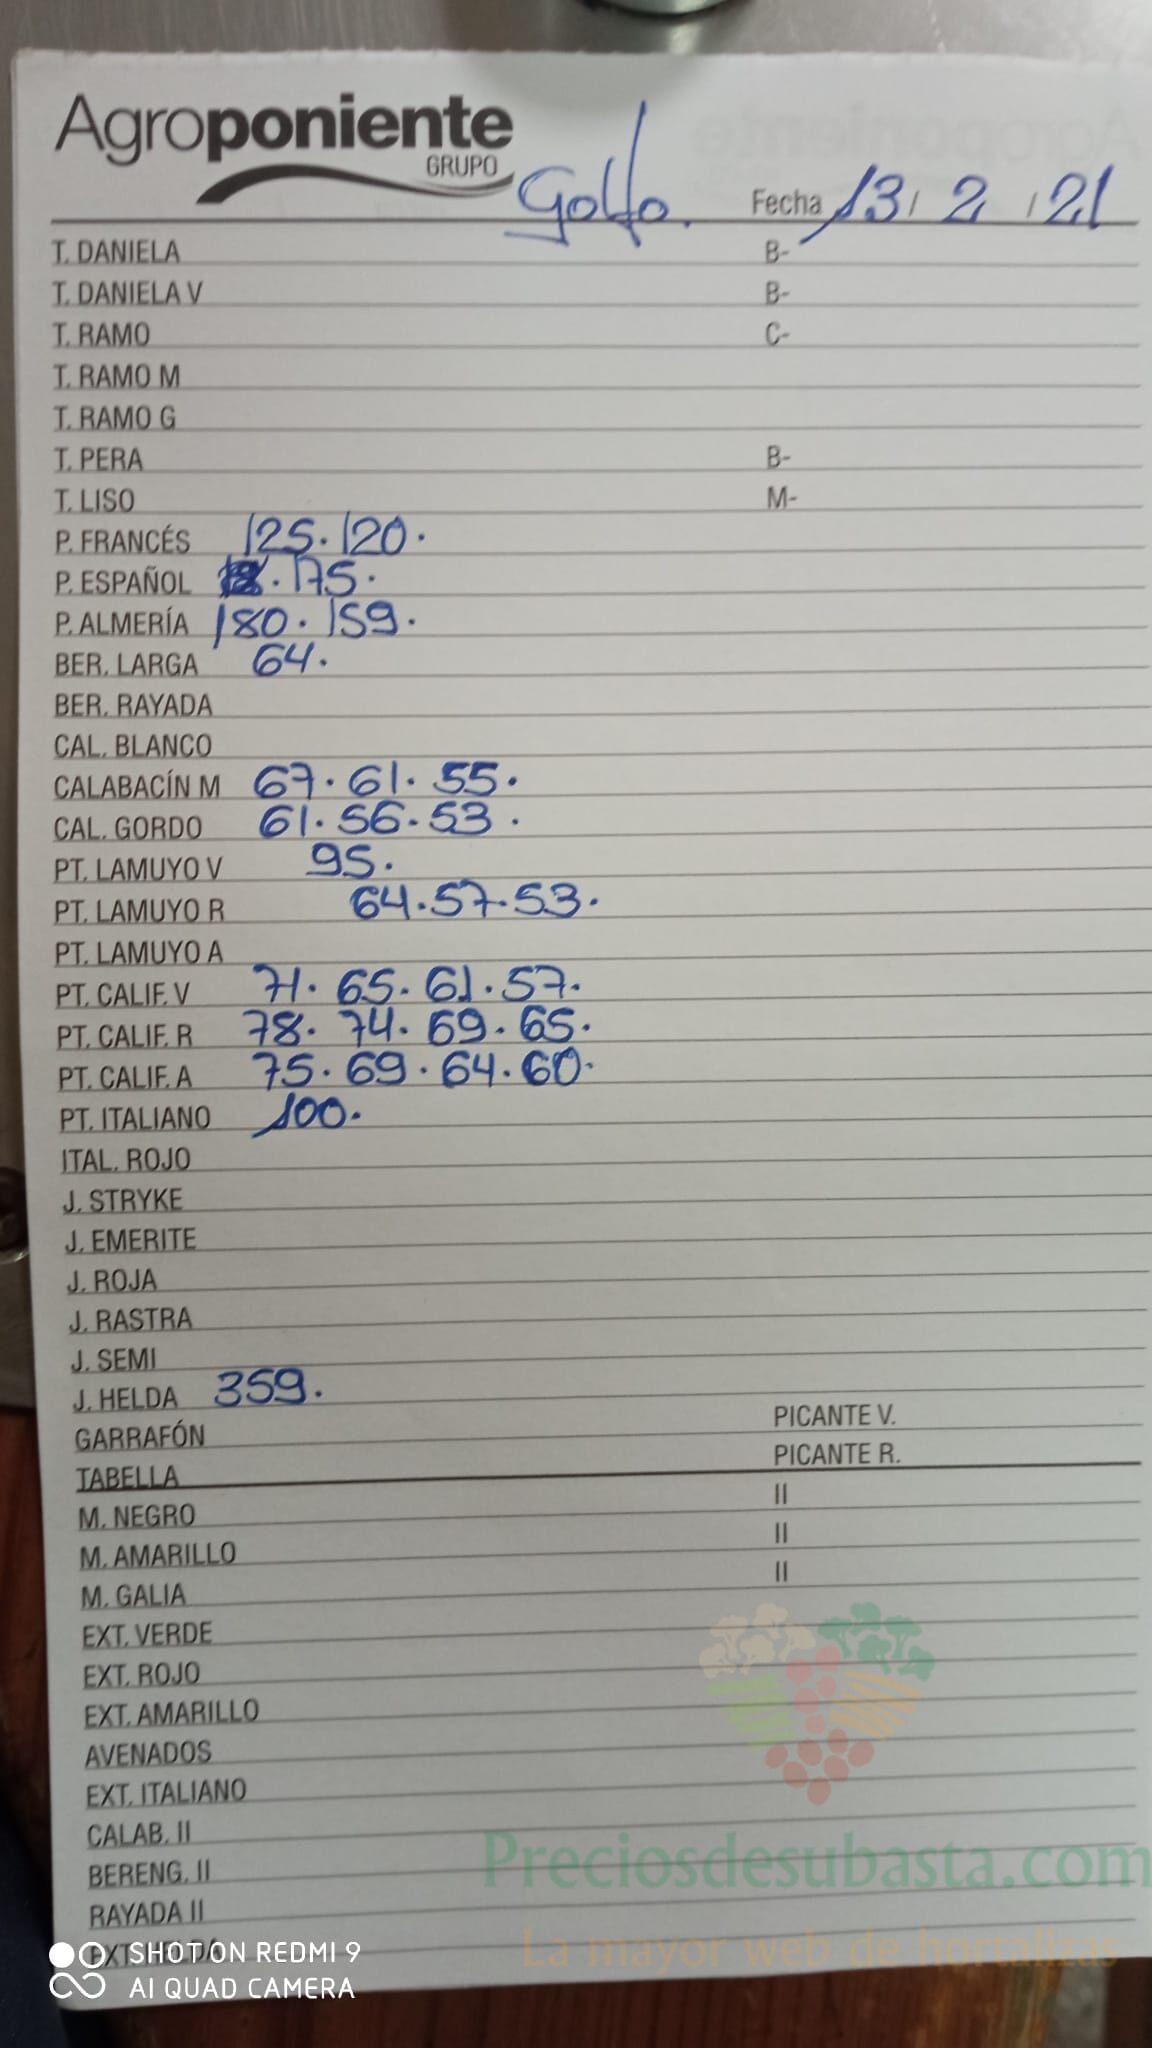 Agroponiente
GRUPO
Golfo. Fecha 13 / 2 / 21
T. DANIELA B-
T. DANIELA V B-
T. RAMO C-
T. RAMO M
T. RAMO G
T. PERA B-
T. LISO M-
P. FRANCÉS 125. 120.
P. ESPAÑOL . 175.
P. ALMERÍA 180. 159.
BER. LARGA 64.
BER. RAYADA
CAL. BLANCO
CALABACÍN M 67. 61. 55.
CAL. GORDO 61. 56. 53.
PT. LAMUYO V 95.
PT. LAMUYO R 64. 57. 53.
PT. LAMUYO A
PT. CALIF. V 71. 65. 61. 57.
PT. CALIF. R 78. 74. 69. 65.
PT. CALIF. A 75. 69. 64. 60.
PT. ITALIANO 100.
ITAL. ROJO
J. STRYKE
J. EMERITE
J. ROJA
J. RASTRA
J. SEMI
J. HELDA 359.
GARRAFÓN PICANTE V.
TABELLA PICANTE R.
M. NEGRO II
M. AMARILLO II
M. GALIA II
EXT. VERDE
EXT. ROJO
EXT. AMARILLO
AVENADOS
EXT. ITALIANO
CALAB. II
BERENG. II
RAYADA II
Preciosdesubasta.com
La mayor web de hortalizas
SHOT ON REDMI 9
AI QUAD CAMERA